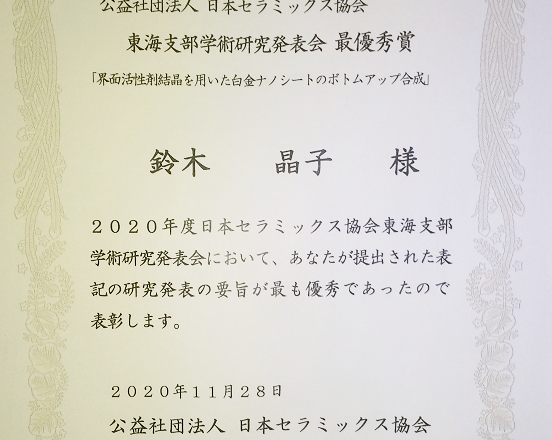 公益社団法人 日本セラミックス協会
東海支部学術研究発表会 最優秀賞
「界面活性剤結晶を用いた白金ナノシートのボトムアップ合成」
鈴木 晶子 様
2020年度日本セラミックス協会東海支部
学術研究発表会において、あなたが提出された表
記の研究発表の要旨が最も優秀であったので
表彰します。
2020年11月28日
公益社団法人 日本セラミックス協会